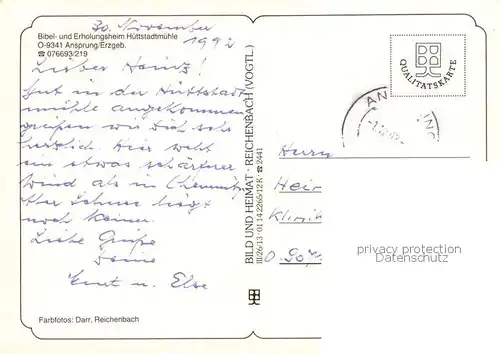 30. November
1992
Bibel- und Erholungsheim Hüttstadtmühle
O-9341 Ansprung/Erzgeb.
☎ 076693/219
Lieber Heinz!
Gut in der Hüttstadt-
mühle angekommen
grüßen wir Dich sehr
herzlich. Hier weht
ein etwas schärferer
Wind als in Chemnitz.
Aber Schnee liegt
noch keiner.
Liebe Grüße
Deine
Ernst u. Else
Farbfotos: Darr, Reichenbach
BILD UND HEIMAT · REICHENBACH (VOGTL.)
III/26/13 · 01 14 2265/12 K · ☎ 2441
QUALITÄTSKARTE
AN
Herrn
Hein
Klinik
O 90
privacy protection
Datenschutz